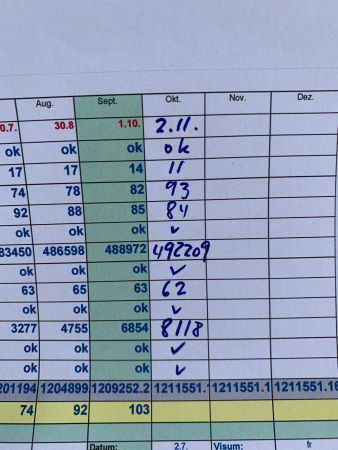 Aug. Sept. Okt. Nov. Dez.
0.7. 30.8 1.10. 2.11.
ok ok ok ok
17 17 14 11
74 78 82 93
92 88 85 84
ok ok ok ✓
83450 486598 488972 492209
ok ok ok ✓
63 65 63 62
ok ok ok ✓
3277 4755 6854 8118
ok ok ok ✓
ok ok ok ✓
201194 1204899 1209252.2 1211551. 1211551.1 1211551.16
74 92 103
Datum: 2.7. Visum: fr